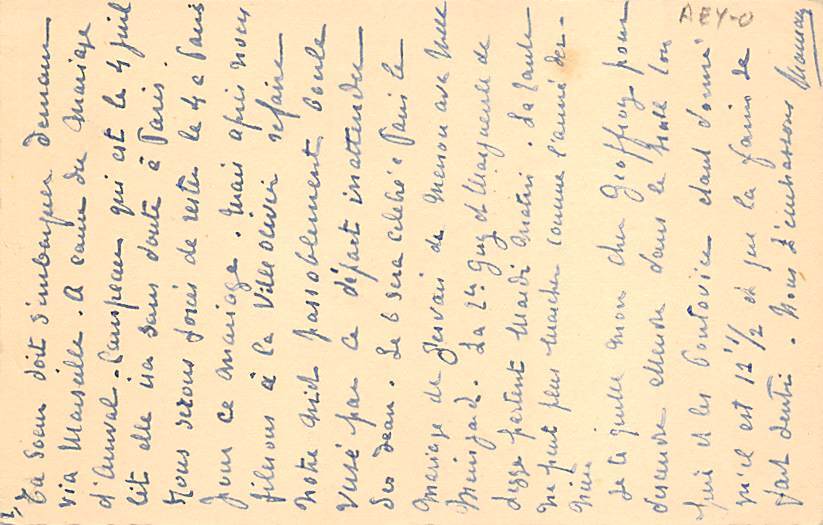 Ta soeur doit s'embarquer demain
via Marseille. A cause du mariage
d'Amval-Campeau qui est le 4 juil
let elle ira sans doute à Paris.
Nous serons forcés de rester le 4 à Paris
pour ce mariage. Mais après nous
filerons à la Ville Olivier refaire
notre nid passablement boule
versé par ce départ inattendu
des Jean. Le 6 sera célébré à Paris le
mariage de Gervais de avec Melle
La Ctesse Guy et Marguerite de
partent Mardi Matin. La tante
ne peut plus marcher comme l'année der-
nière
Je te quitte mon cher Geoffroy pour
descendre dans le hall lon
et les étant donné
qu'il est 12h 1/2 et que la faim se
fait sentir. Nous t'embrassons Maman